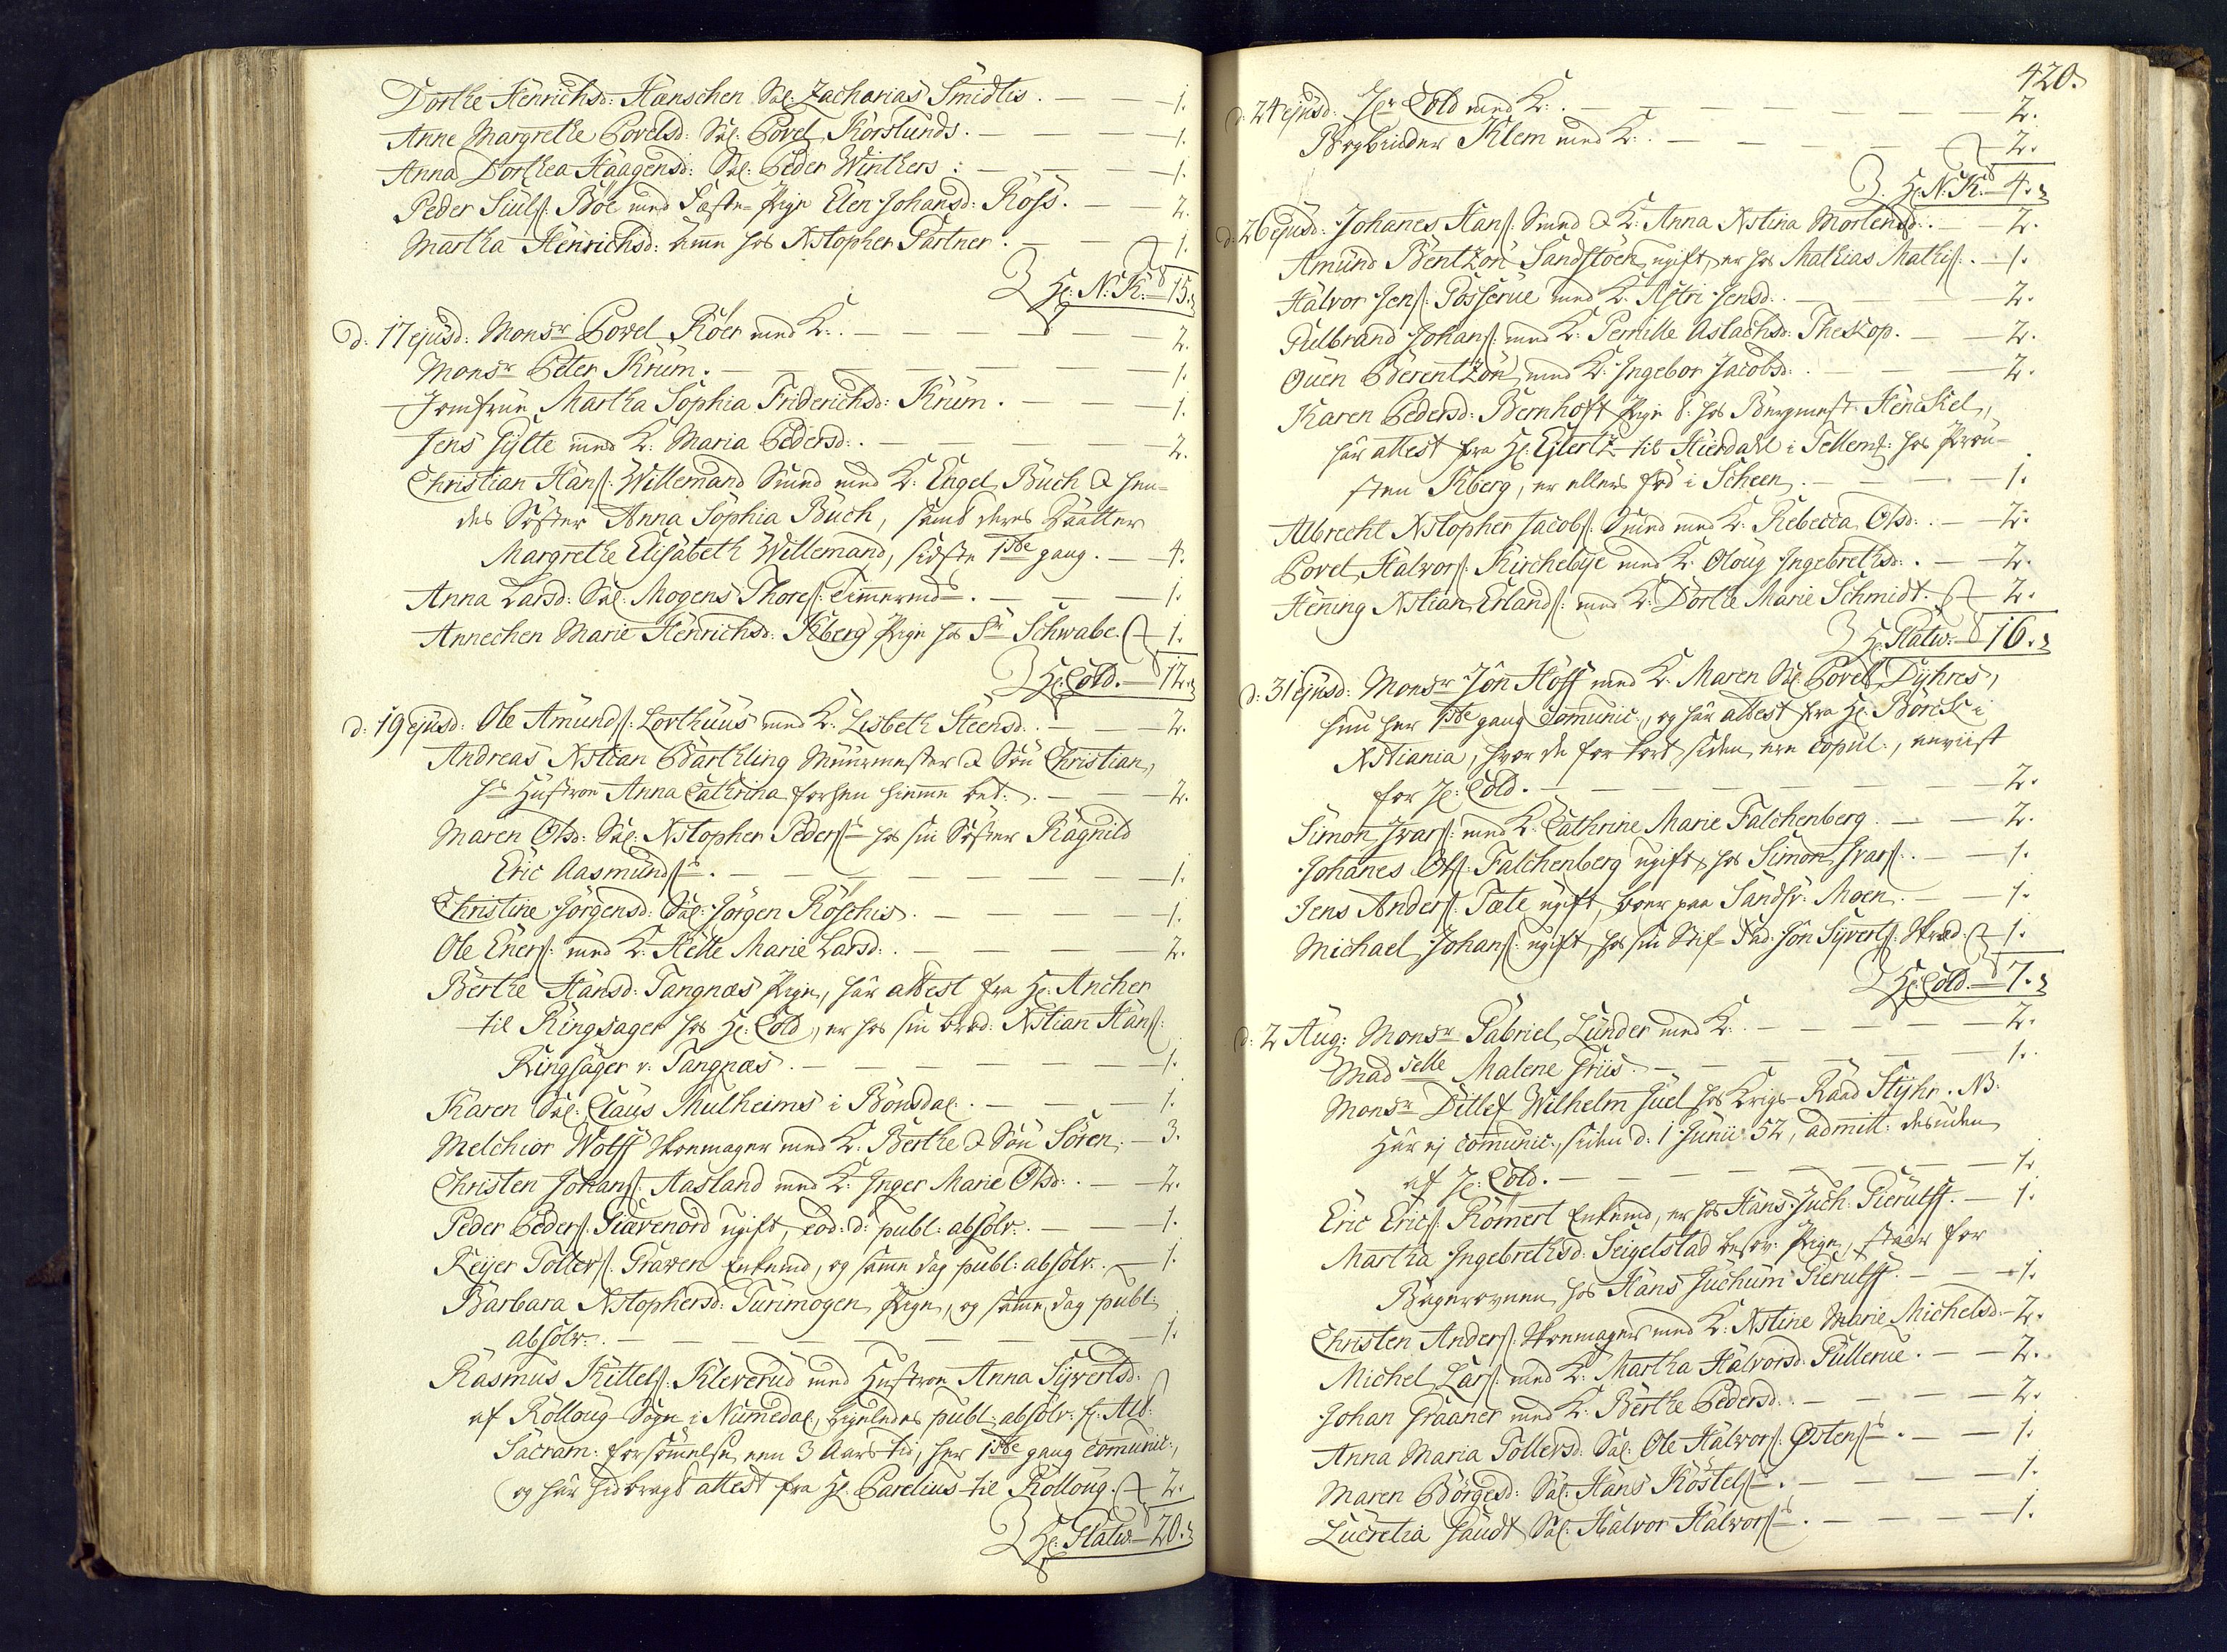 Dorthe Henrichsd: Hanschen Sal. Zacharias Smidtis. — — 1.
Anne Margrethe Povelsd: Sal. Povel Korslunds. — — 1.
Anna Dorthea Haagensd: Sal. Peder Winthers: — — 1.
Peder Siuls: Böe med Fæste-Pige Elen Johansd: Ross. — 2.
Martha Henrichsd: Amme hos Xstopher Gartner. — 1.
H: N: K: — 15.
d: 17 ejusd: Monsr Povel Röer med K: — — 2.
Monsr Peter Krum. — — 1.
Jomfrue Martha Sophia Friderichsd: Krum. — — 1.
Jens Gylte med K: Maria Pedersd: — — 2.
Christian Hans: Willemand Smed med K: Engel Buch & hen-
des Söster Anna Sophia Buch, samt deres Daatter
Margrethe Elisabeth Willemand, sidste 1ste gang. — 4.
Anna Larsd: Sal. Mogens Thores: Timmermds. — — 1.
Annechen Marie Henrichsd: Kberg Pige hos Sr Schwabe. — 1.
H: Cold. — 12.
d: 19 ejusd: Ole Amunds: Lorthuus med K: Lisbeth Steensd: — 2.
Andreas Xstian Barthling Muurmester & Sön Christian,
hs Hustroe Anna Cathrina forhen hiemme bet: — 2.
Maren Olsd: Sal. Xstopher Peders: hos sin Söster Ragnild
Eric Aasmunds: — — 1.
Christine Jörgensd: Sal: Jörgen Röschis. — — 1.
Ole Eners: med K: Helle Marie Larsd: — — 2.
Berthe Hansd: Tangnæs Pige, har attest fra H: Ancher
til Ringsager hos H: Cold, er hos sin brod: Xstian Hans:
Ringsager v. Tangnæs. — — 1.
Karen Sal. Claus Mulheims i Bonsdal. — — 1.
Melchior Wolff Skoemager med K: Berthe & Sön Sören. — 3.
Christen Johans: Aasland med K: Inger Marie Olsd: — 2.
Peder Peders: Giævenord ugift, eod: d: publ: absolv: — 1.
Reijer Tollevs: Graven Enkemd, og samme dag publ: absolv: — 1.
Barbara Xstophersd: Turimogen Pige, og samme dag publ:
absolv: — — 1.
Rasmus Kittels: Kleverud med Hustroe Anna Syvertsd:
af Rolloug Sogn i Numedal, ligeledes publ: absolv: f: Alt:
Sacram: forsömmelse een 3 Aars tid, her 1ste gang comunic:,
og har hidbragt attest fra H: Parelius til Rolloug. — 2.
H: Statw: — 20.
420.
d: 24 ejusd: Hr Cold med K: — — 2.
Bogbinder Klem med K: — — 2.
H: N: K: — 4.
d: 26 ejusd: Johanes Hans: Smed & K: Anna Xstina Mortensd: — 2.
Amund Bentzon Sandstöen ugift, er hos Mathias Mathis: — 1.
Halvor Jens: Gosserue med K: Astri Jensd: — 2.
Gulbrand Johans: med K: Pernille Aslachsd: Theskop. — 2.
Ouen Berentzön med K: Ingebor Jacobsd: — 2.
Karen Pedersd: Bernhoft Pige hos Bergmest: Henckel,
har attest fra H: Ejlertz til Hierdahl i Tellem: hos Prou-
sten Kberg, er ellers föd i Scheen. — — 1.
Albrecht Xstopher Jacobs: Smed med K: Rebecca Olsd: — 2.
Povel Halvors: Kirchebye med K: Oloug Ingebrethsd: — 2.
Henning Xstian Erlands: med K: Dorthe Marie Schmidt. — 2.
H: Statw: — 16.
d: 31 ejusd: Monsr Jon Hoff med K: Maren Sal. Povel Dyhres,
hun her 1ste gang Comunic:, og har attest fra H: Börck i
Xstiania, hvor de for kort siden ere copul:, anviist
for H: Cold. — — 2.
Simon Ivars: med K: Cathrine Marie Falchenberg. — 2.
Johanes Ols: Falchenberg ugift, hos Simon Ivars: — 1.
Jens Anders: Tæte ugift, boer paa Sandsv: Moen. — 1.
Michael Johans: ugift, hos sin Stif-Fad: Jon Syverts: Skræd: — 1.
H: Cold. — 7.
d: 2 Aug: Monsr Gabriel Lunder med K: — 2.
Madselle Malene Friis. — 1.
Monsr Ditlef Wilhelm Juel hos Krigs-Raad Styhr. NB.
Har ej Comunic: siden d: 1 Junii 52, admitt: desuden
af H: Cold. — — 1.
Eric Erics: Römert Enkemd, er hos Hans Juch: Pierulff. — 1.
Martha Ingebrethsd: Seigelstad besov: Pige, staar for
Bagerovnen hos Hans Juchum Pierulff. — 1.
Christen Anders: Skoemager med K: Xstine Marie Michelsd: — 2.
Michel Lars: med K: Martha Halvorsd: Gullerue. — 2.
Johan Graaner med K: Berthe Pedersd: — 2.
Anna Maria Tollevsd: Sal: Ole Halvors: Östens: — 1.
Maren Börgesd: Sal: Hans Röstels: — 1.
Lucretia Gaudt Sal: Halvor Halvors: — 1.